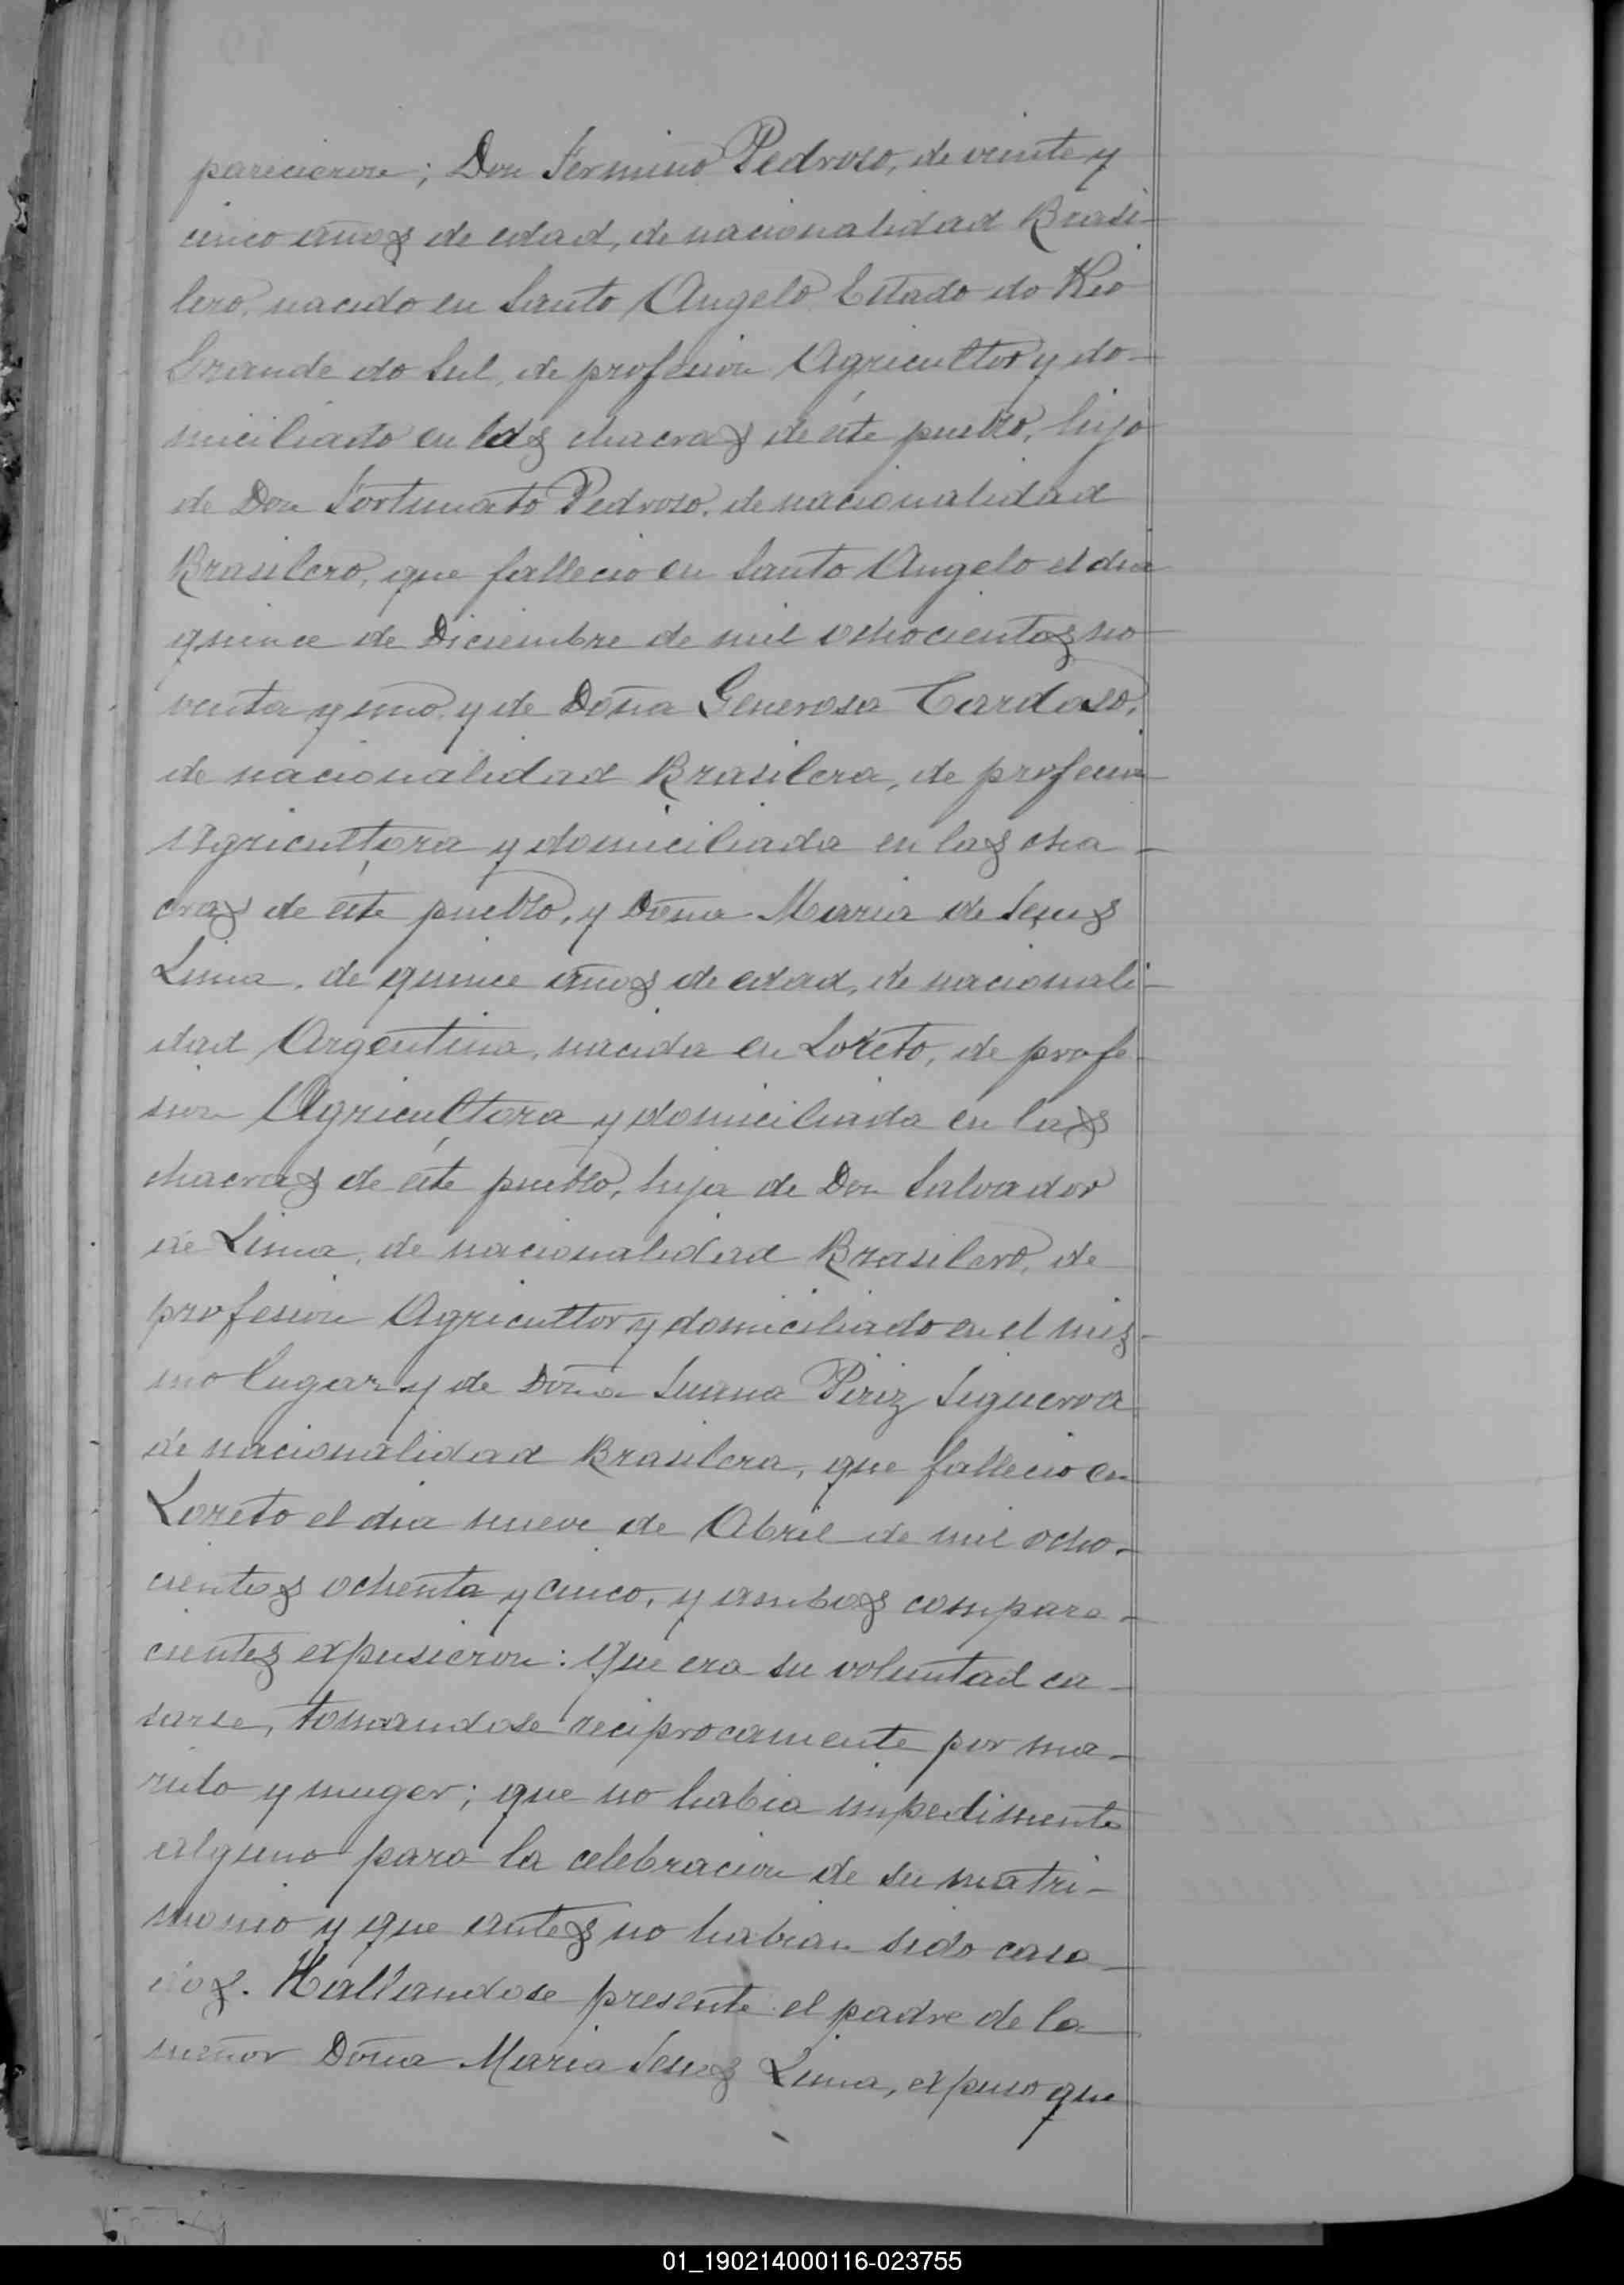 parecieron; Don Fermino Pedroso, de veinte y
cinco años de edad, de nacionalidad Brasi-
lero, nacido en Santo Angelo Estado do Rio
Grande do Sul, de profesion Agricultor y do-
miciliado en las chacras de éste pueblo, hijo
de Don Fortunato Pedroso, de nacionalidad
Brasilero, que fallecio en Santo Angelo el dia
quince de Diciembre de mil ochocientos no-
venta y uno, y de Doña Generosa Cardoso,
de nacionalidad Brasilera, de profesion
Agricultora y domiciliada en las cha-
cras de éste pueblo, y Doña Maria de Jesus
Lima, de quince años de edad, de nacionali-
dad Argentina, nacida en Loreto, de profe-
sion Agricultora y domiciliada en las
chacras de éste pueblo, hija de Don Salvador
de Lima, de nacionalidad Brasilero, de
profesion Agricultor y domiciliado en el mis-
mo lugar y de Doña Juana Piriz Siguerva
de nacionalidad Brasilera, que fallecio en
Loreto el dia nueve de Abril de mil ocho-
cientos ochenta y cinco, y ambos compare-
cientes expusieron: Que era su voluntad ca-
sarse, tomandose reciprocamente por ma-
rido y muger; que no habia impedimento
alguno para la celebracion de su matri-
monio y que antes no habian sido casa-
dos. Hallandose presente el padre de la
menor Doña Maria Jesus Lima, expuso que
01_190214000116-023755